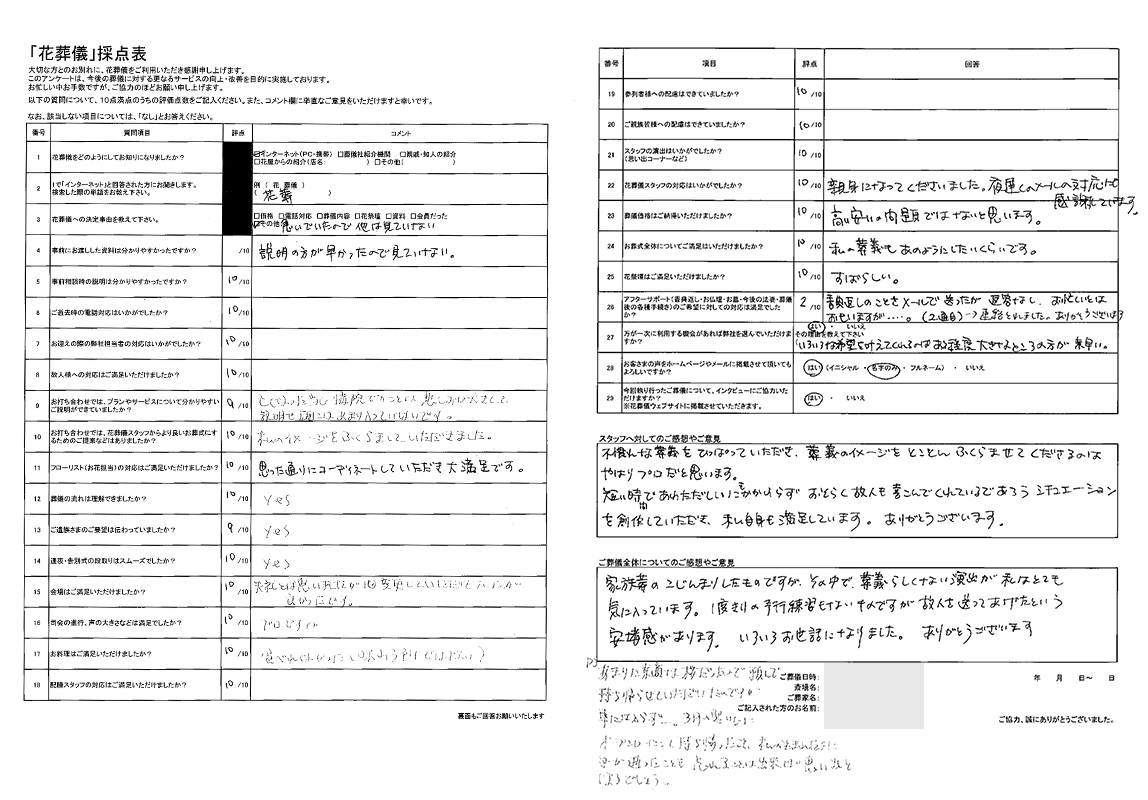 「花葬儀」採点表
大切な方とのお別れに、花葬儀をご利用いただき感謝申し上げます。
このアンケートは、今後の葬儀に対する更なるサービスの向上・改善を目的に実施しております。
お忙しい中お手数ですが、ご協力のほどお願い申し上げます。
以下の質問について、10点満点のうちの評価点数をご記入ください。また、コメント欄に率直なご意見をいただけますと幸いです。
なお、該当しない項目については、「なし」とお答えください。
番号 質問項目 評点 コメント
1 花葬儀をどのようにしてお知りになりましたか? ☑インターネット(PC・携帯) □葬儀社紹介機関 □親戚・知人の紹介
□花屋からの紹介(店名: ) □その他( )
2 1で「インターネット」と回答された方にお聞きします。
検索した際の単語をお教え下さい。
例 ( 花 葬儀 )
( 花葬 )
3 花葬儀への決定事由を教えて下さい。 □価格 □電話対応 □葬儀内容 □花祭壇 □資料 □会員だった
☑その他 急いでいたので他は見ていない
4 事前にお渡しした資料は分かりやすかったですか? /10 説明の方が早かったので見ていない。
5 事前相談時の説明は分かりやすかったですか? 10/10
6 ご逝去時の電話対応はいかがでしたか? 10/10
7 お迎えの際の弊社担当者の対応はいかがでしたか? 10/10
8 故人様への対応はご満足いただけましたか? 10/10
9 お打ち合わせでは、プランやサービスについて分かりやすい
ご説明ができていましたか?
9/10
10 お打ち合わせでは、花葬儀スタッフからより良いお葬式に
するためのご提案などはありましたか?
10/10 私のイメージをふくらましていただきました。
11 フローリスト(お花担当)の対応はご満足いただけましたか? 10/10 思った通りにコーディネートしていただき大満足です。
12 葬儀の流れは理解できましたか? 10/10 yes
13 ご遺族さまのご要望は伝わっていましたか? 9/10 yes
14 通夜・告別式の段取りはスムーズでしたか? 10/10 yes
15 会場はご満足いただけましたか? 10/10
良かったです。
16 司会の進行、声の大きさなどは満足でしたか? 10/10 プロですね
17 お料理はご満足いただけましたか? 10/10
18 配膳スタッフの対応はご満足いただけましたか? 10/10
裏面もご回答お願いいたします
番号 項目 評点 回答
19 参列者様への配慮はできていましたか? 10/10
20 ご親族皆様への配慮はできていましたか? 10/10
21 スタッフの演出はいかがでしたか?
(思い出コーナーなど)
10/10
22 花葬儀スタッフの対応はいかがでしたか? 10/10 親身になってくださいました。夜遅くのメールの対応に
感謝しています。
23 葬儀価格はご納得いただけましたか? 10/10 高い安いの問題ではないと思います。
24 お葬式全体についてご満足はいただけましたか? 10/10 私の葬義もあのようにしたいくらいです。
25 花祭壇はご満足いただけましたか? 10/10 すばらしい。
26 アフターサポート(香典返し・お仏壇・お墓・今後の法要・葬儀
後の各種手続き)のご希望に対しての対応は満足でした
か?
2/10 香典返しのことをメールで送ったが返答なし、お忙しいとは
思いますが‥‥。(2週目)→連絡きました。ありがとうございます
27 万が一次に利用する機会があれば弊社を選んでいただけますか?
はい ・ いいえ
その理由を教えて下さい
(いろいろな希望を叶えてくれるのはある程度大きなところの方が素早い。
28 お客さまの声をホームページやメールに掲載させて頂いても
よろしいですか?
はい (イニシャル・名字のみ・フルネーム) ・ いいえ
29 今回執り行ったご葬儀について、インタビューにご協力いた
だけますか?
※花葬儀ウェブサイトに掲載させていただきます。
はい ・ いいえ
スタッフへ対してのご感想やご意見
不慣れな葬義をひっぱっていただき、葬義のイメージをとことんふくらませてくださるのは
やはりプロだと思います。
短い時間であわただしいにもかかわらずおそらく故人も喜こんでくれているであろうシチュエーション
を創作していただき、私自身も満足しています。ありがとうございます。
ご葬儀全体についてのご感想やご意見
家族葬のこじんまりしたものですが、その中で、葬義らしくない演出が私はとても
気に入っています。1度きりの予行練習もないものですが故人を送ってあげたという
安堵感があります。いろいろお世話になりました。ありがとうございます
P.S
ご葬儀日時: 年 月 日~ 日
斎場名:
ご葬家名:
ご記入された方のお名前:
ご協力、誠にありがとうございました。